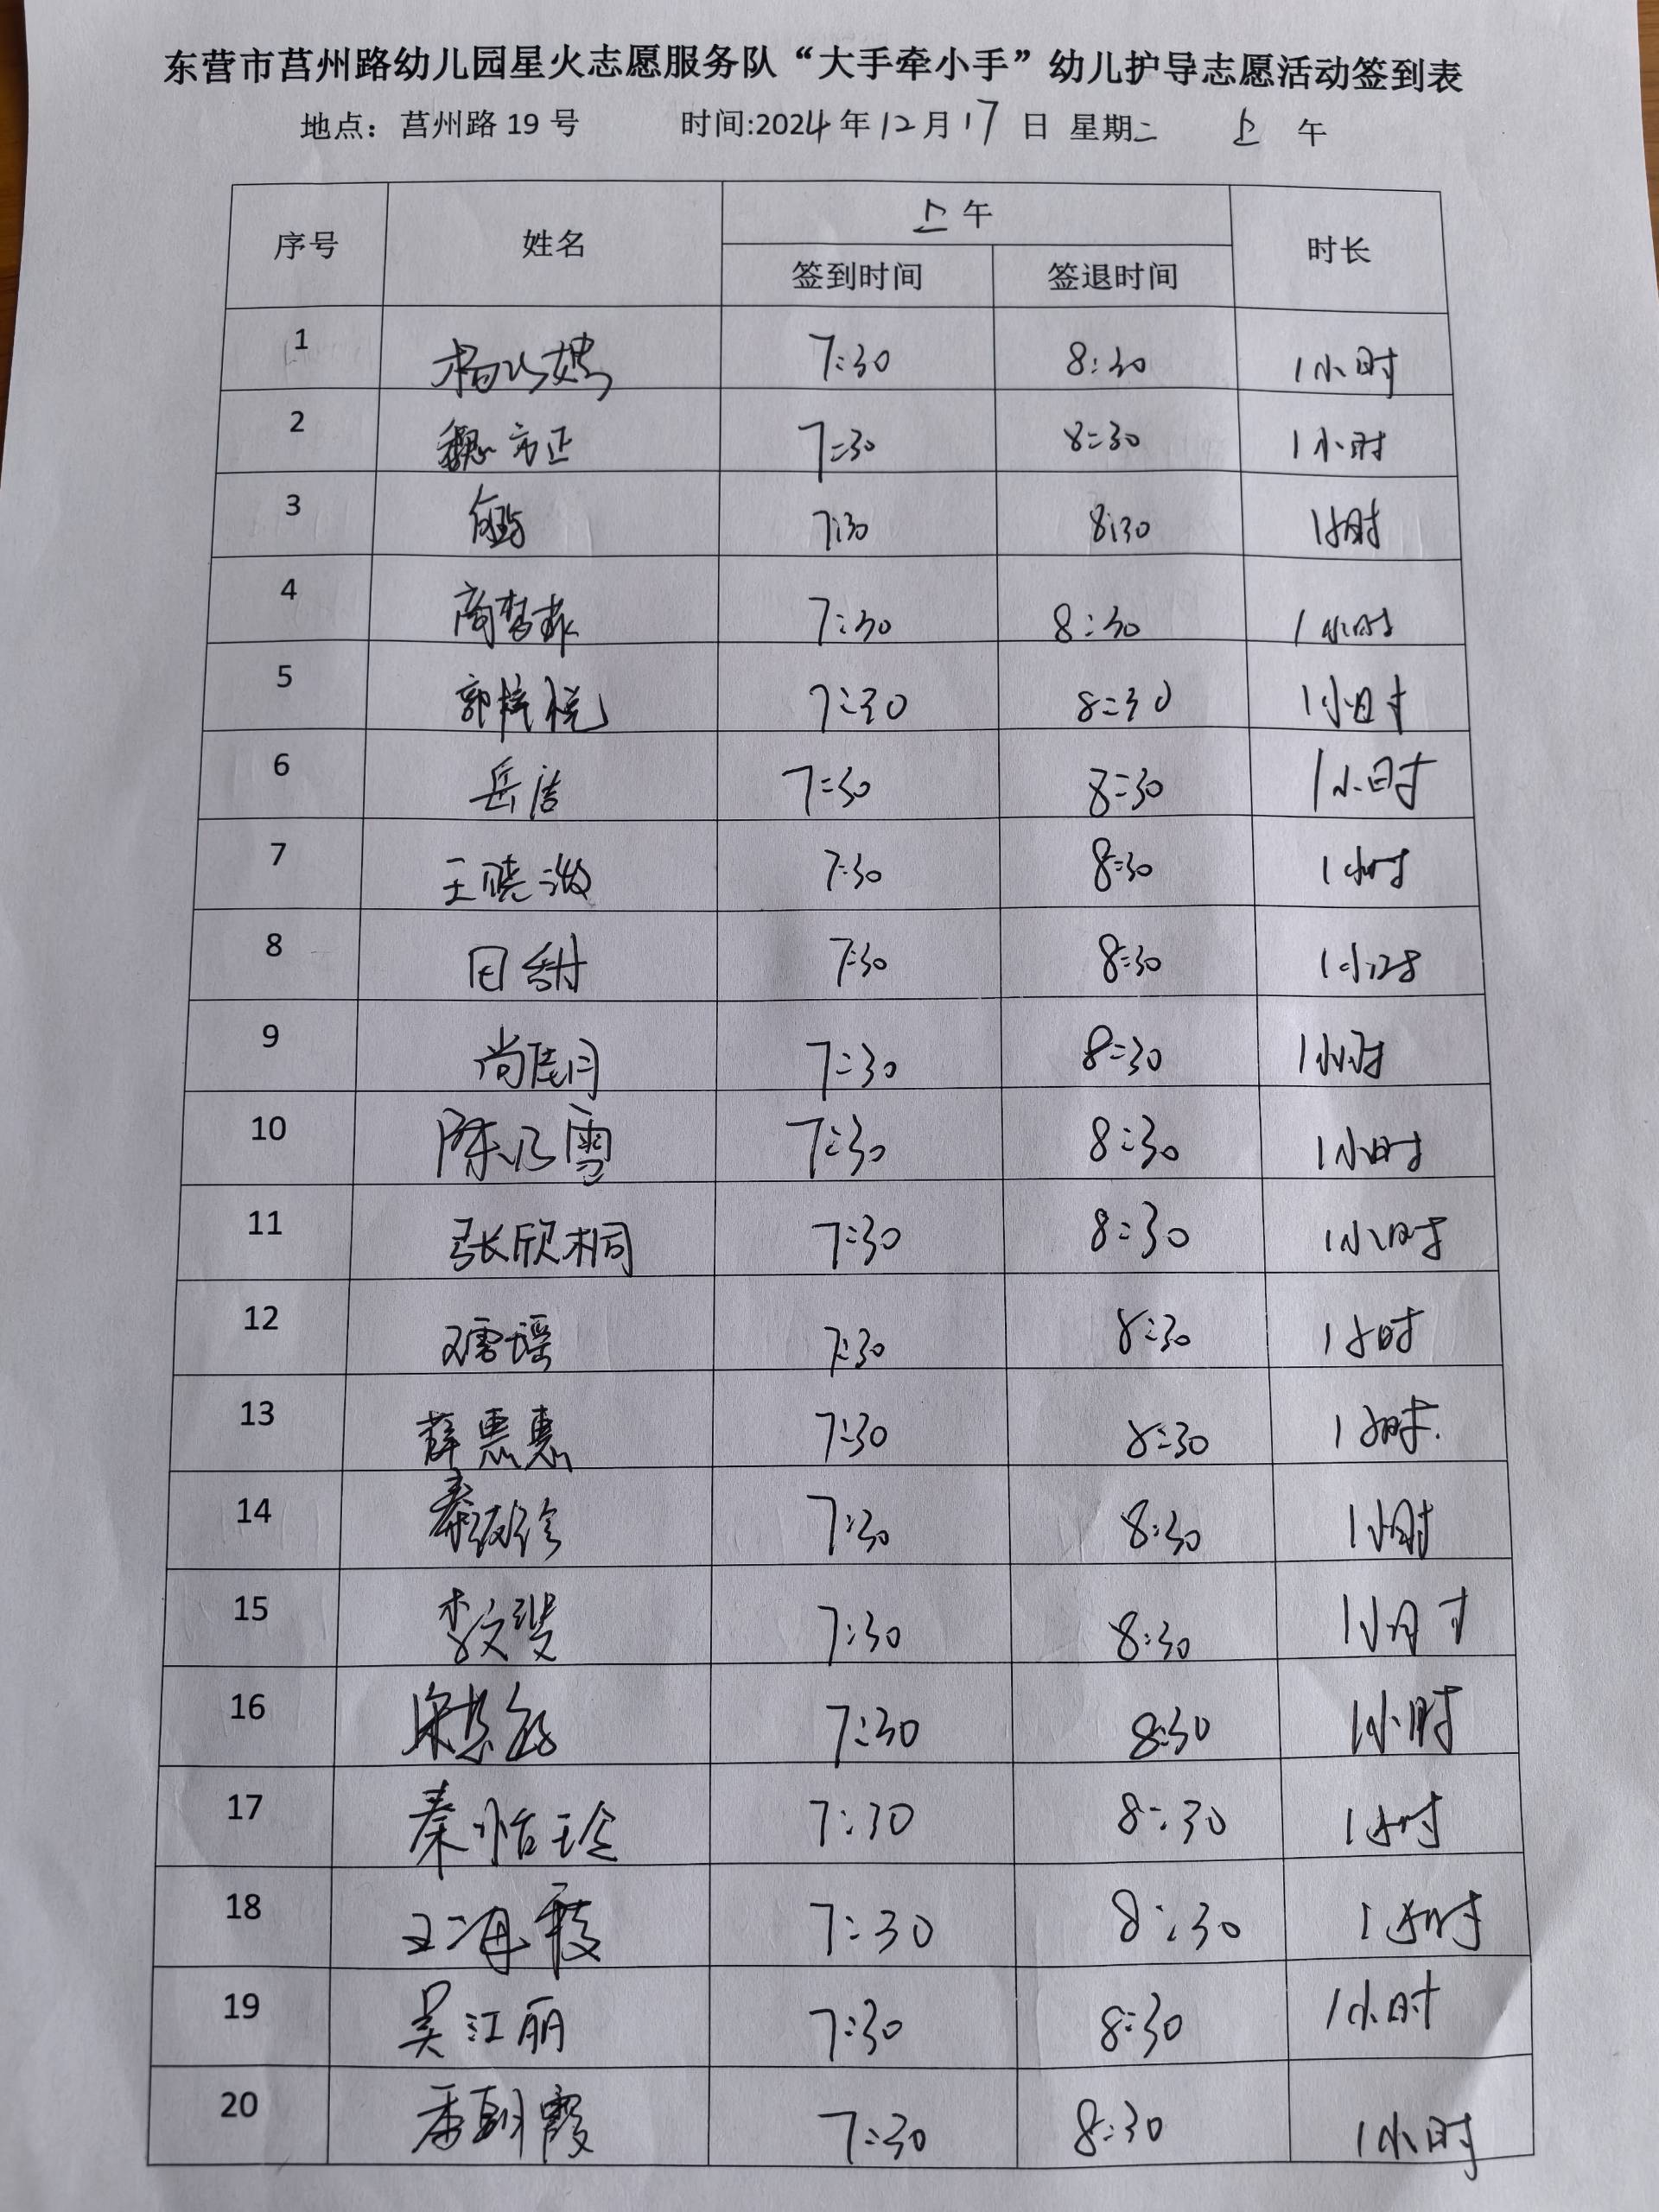 东营市莒州路幼儿园星火志愿服务队“大手牵小手”幼儿护导志愿活动签到表
地点：莒州路 19 号 时间:2024 年 12 月 17 日 星期二 上 午
序号 姓名 上午 时长
签到时间 签退时间
1 7:30 8:30 1小时
2 魏方正 7:30 8:30 1小时
3 7:30 8:30 1小时
4 商梦菲 7:30 8:30 1小时
5 郭梓悦 7:30 8:30 1小时
6 岳洁 7:30 8:30 1小时
7 王晓激 7:30 8:30 1小时
8 田甜 7:30 8:30 1小时
9 尚佳月 7:30 8:30 1小时
10 陈乃雪 7:30 8:30 1小时
11 张欣桐 7:30 8:30 1小时
12 邓雪瑶 7:30 8:30 1小时
13 薛惠惠 7:30 8:30 1小时.
14 7:30 8:30 1小时
15 李文斐 7:30 8:30 1小时
16 7:30 8:30 1小时
17 秦怡玲 7:30 8:30 1小时
18 王海霞 7:30 8:30 1小时
19 吴江丽 7:30 8:30 1小时
20 季朝霞 7:30 8:30 1小时